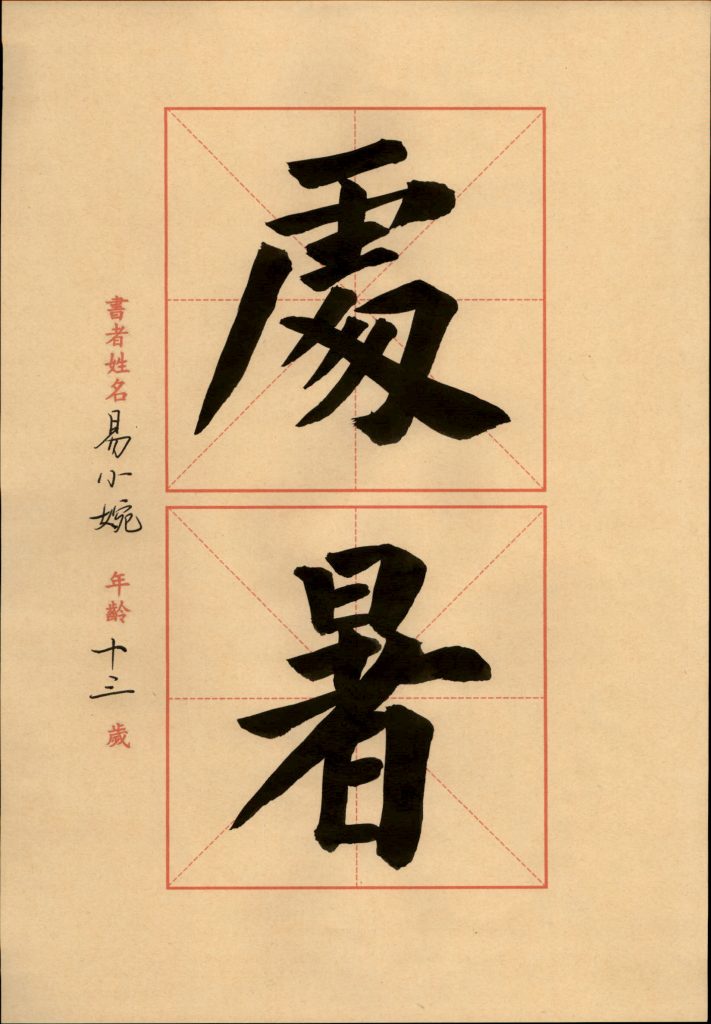 處暑
書者姓名 易小婉 年齡 十三 歲